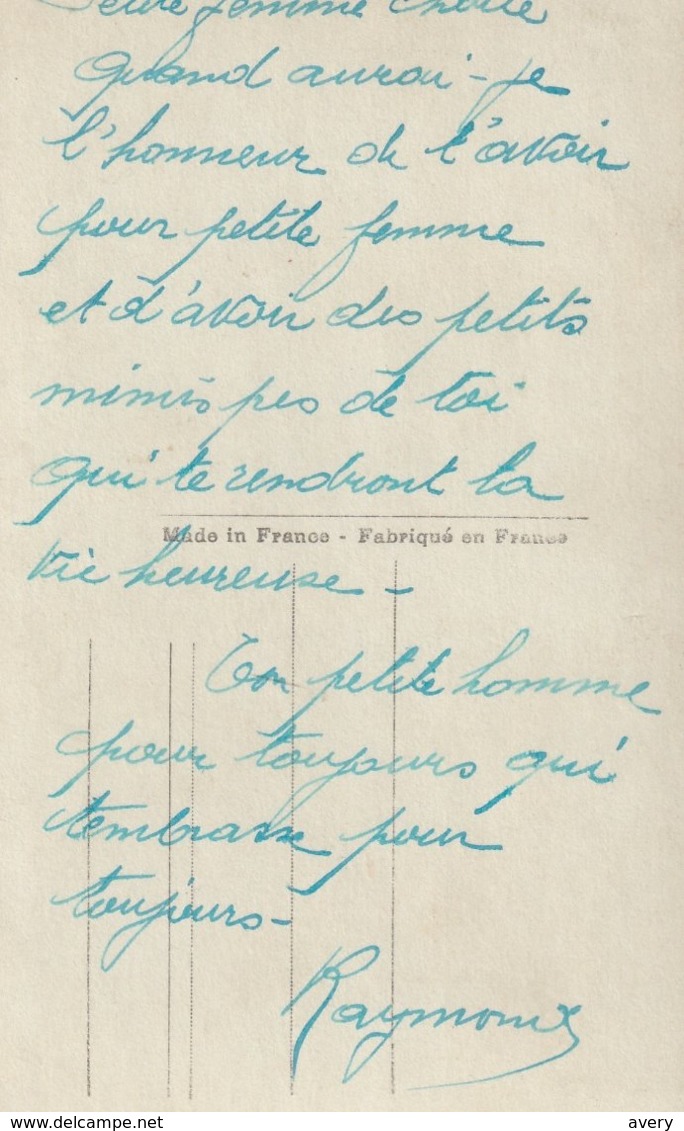 Petite femme chérie
Quand aurai-je
l'honneur de t'avoir
pour petite femme
et d'avoir des petits
mimis pes de toi
qui te rendront la
Made in France - Fabriqué en France
vie heureuse -
Ton petite homme
pour toujours qui
t'embrasse pour
toujours -
Raymond
delcampe.net
avery